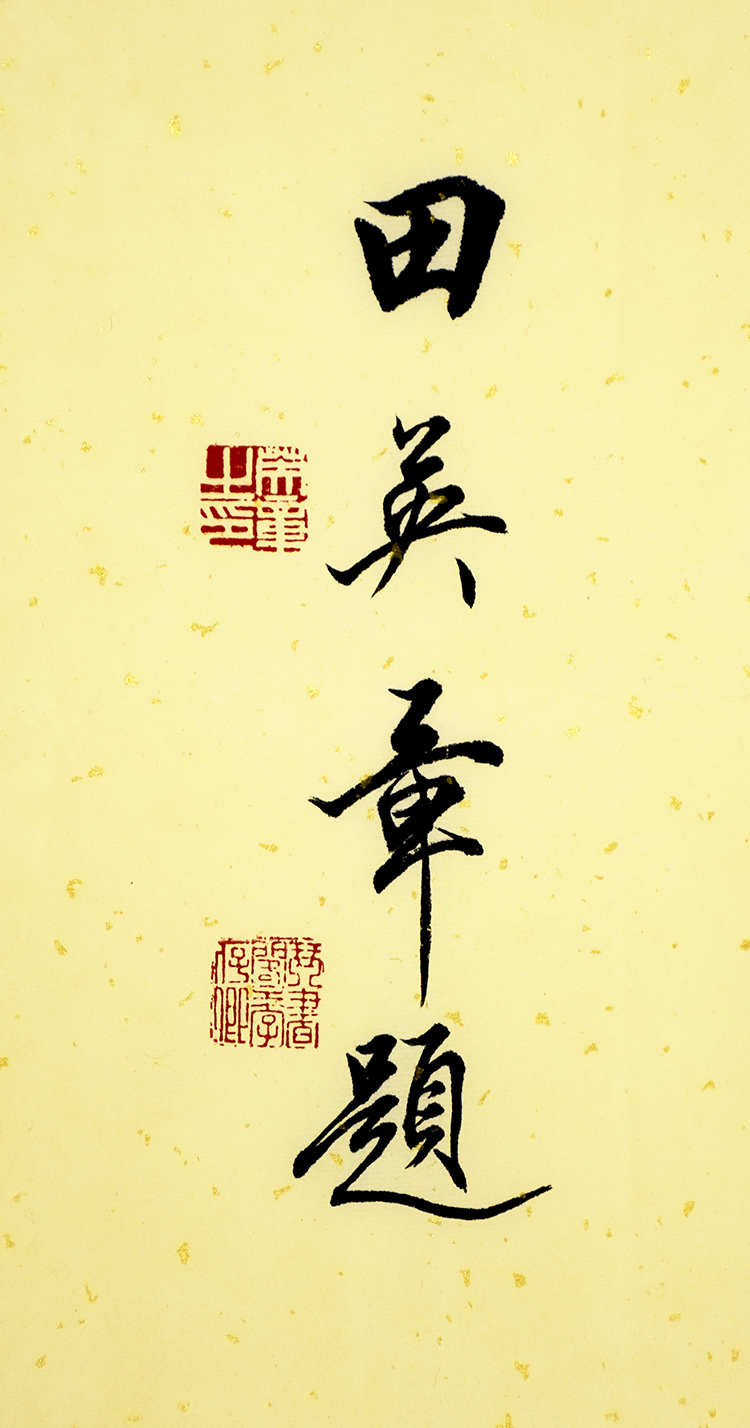 田英章題